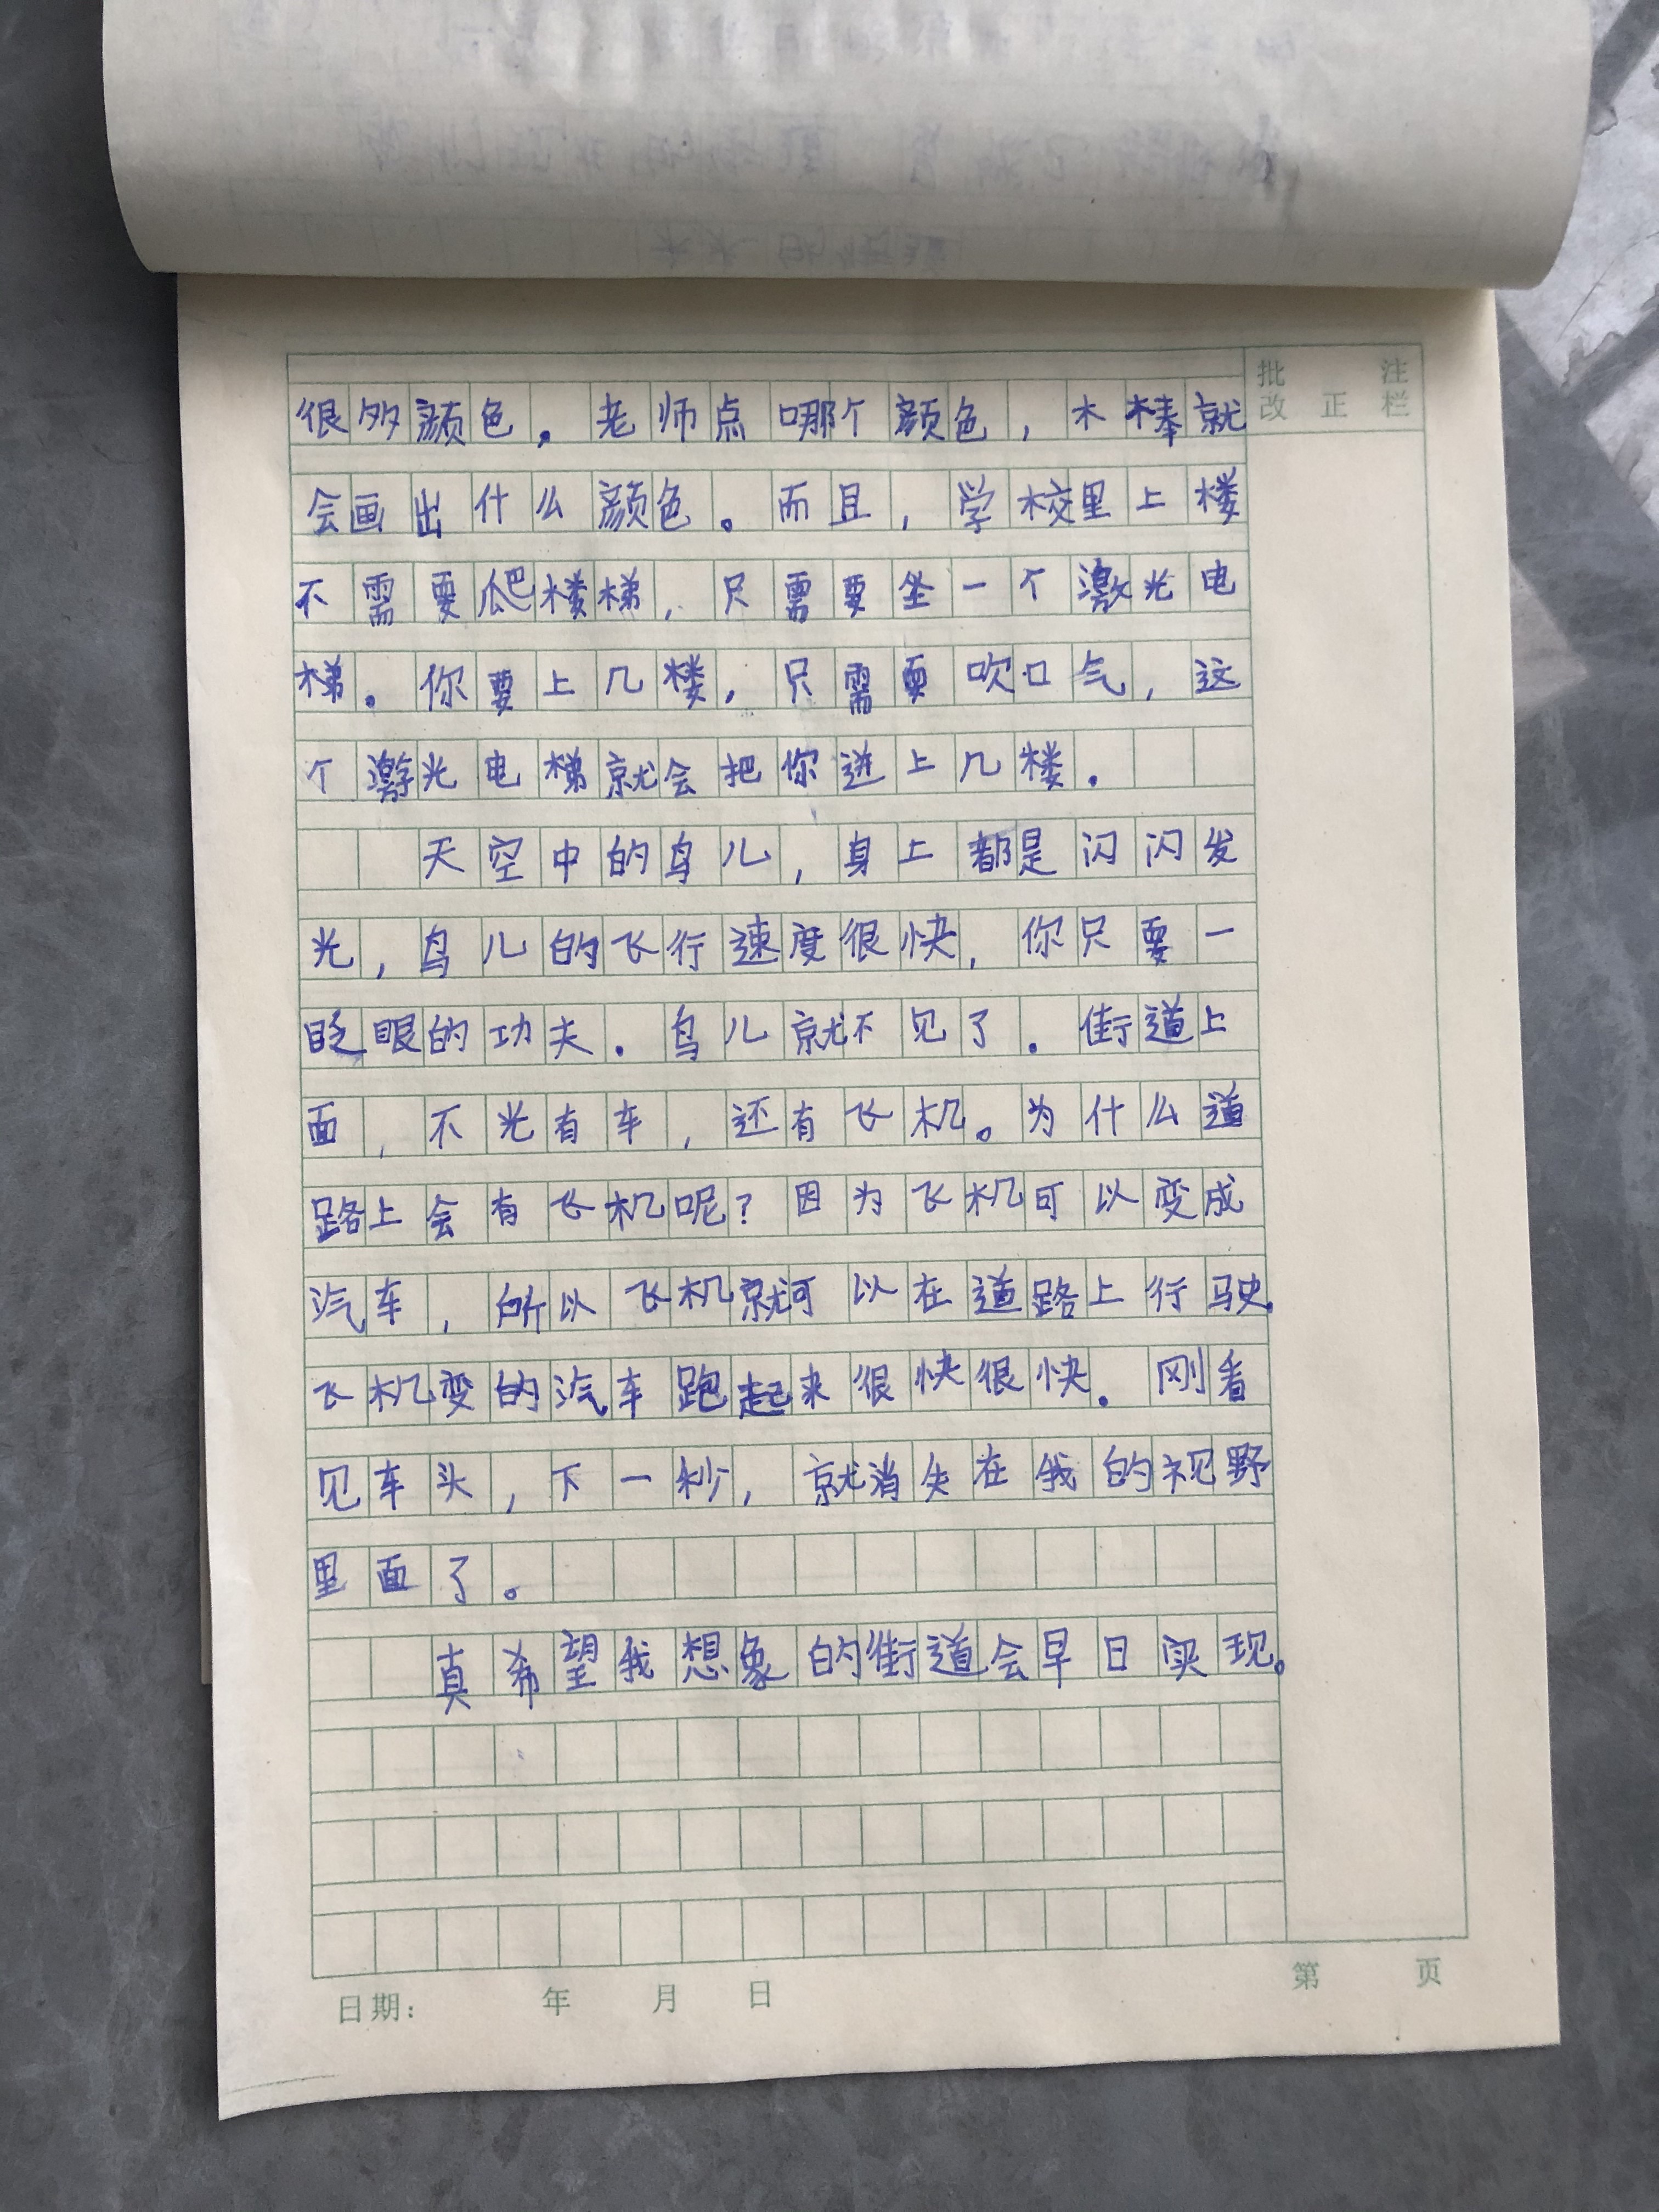 批 注
改 正 栏
很多颜色。老师点哪个颜色，木棒就
会画出什么颜色。而且，学校里上楼
不需要爬楼梯，只需要坐一个激光电
梯。你要上几楼，只需要吹口气，这
个激光电梯就会把你送上几楼。
天空中的鸟儿，身上都是闪闪发
光，鸟儿的飞行速度很快，你只要一
眨眼的功夫。鸟儿就不见了。街道上
面，不光有车，还有飞机。为什么道
路上会有飞机呢？因为飞机可以变成
汽车，所以飞机就可以在道路上行驶。
飞机变的汽车跑起来很快很快。刚看
见车头，下一秒，就消失在我的视野
里面了。
真希望我想象的街道会早日实现。
日期： 年 月 日
第 页